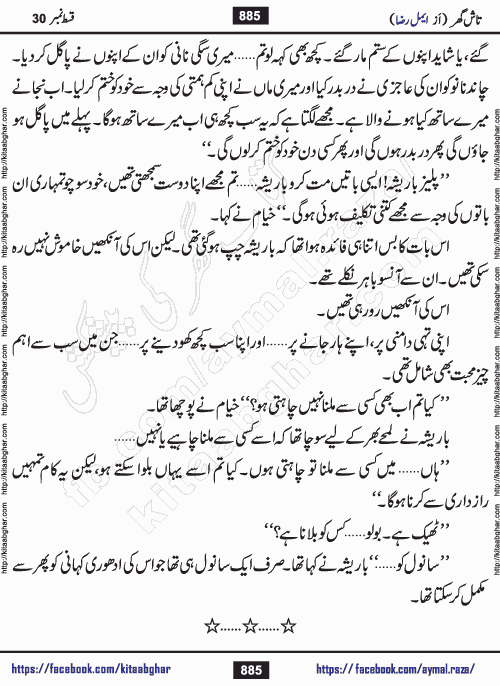 تاش گھر (از ایمل رضا)
885
قسط نمبر 30
گئے، یا شاید اپنوں کے ستم مار گئے۔ کچھ بھی کہہ لو تم......میری سگی نانی کو ان کے اپنوں نے پاگل کر دیا۔
چاند نانو کو ان کی عاجزی نے در بدر کیا اور میری ماں نے اپنی کم ہمتی کی وجہ سے خود کو ختم کر لیا۔ اب نجانے
میرے ساتھ کیا ہونے والا ہے۔ مجھے لگتا ہے کہ یہ سب کچھ ہی اب میرے ساتھ ہوگا۔ پہلے میں پاگل ہو
جاؤں گی پھر در بدر ہوں گی اور پھر کسی دن خود کو ختم کر لوں گی۔‘‘
’’پلیز باریشہ! ایسی باتیں مت کرو باریشہ......تم مجھے اپنا دوست سمجھتی تھیں، خود سوچو تمہاری ان
باتوں کی وجہ سے مجھے کتنی تکلیف ہوئی ہوگی۔‘‘ خیام نے کہا۔
اس بات کا بس اتنا ہی فائدہ ہوا تھا کہ باریشہ چپ ہو گئی تھی۔ لیکن اس کی آنکھیں خاموش نہیں رہ
سکی تھیں۔ ان سے آنسو باہر نکلے تھے۔
اس کی آنکھیں رو رہی تھیں۔
اپنی تہی دامنی پر، اپنے ہار جانے پر......اور اپنا سب کچھ کھو دینے پر......جن میں سب سے اہم
چیز محبت بھی شامل تھی۔
’’کیا تم اب بھی کسی سے ملنا نہیں چاہتی ہو؟‘‘ خیام نے پوچھا تھا۔
باریشہ نے لمحے بھر کے لیے سوچا تھا کہ اسے کسی سے ملنا چاہیے یا نہیں......
’’ہاں......میں کسی سے ملنا تو چاہتی ہوں۔ کیا تم اسے یہاں بلوا سکتے ہو، لیکن یہ کام تمہیں
رازداری سے کرنا ہوگا۔‘‘
’’ٹھیک ہے۔ بولو......کس کو بلانا ہے؟‘‘
’’سانول کو......‘‘ باریشہ نے کہا تھا۔ صرف ایک سانول ہی تھا جو اس کی ادھوری کہانی کو پھر سے
مکمل کر سکتا تھا۔
☆......☆......☆
http://kitaabghar.com http://kitaabghar.com http://kitaabghar.com http://kitaabghar.com http://kitaabghar.com
http://kitaabghar.com http://kitaabghar.com http://kitaabghar.com http://kitaabghar.com http://kitaabghar.com
fb.com/aymal.raza
kitaabghar.com
https://facebook.com/kitaabghar
885
https://facebook.com/aymal.raza/